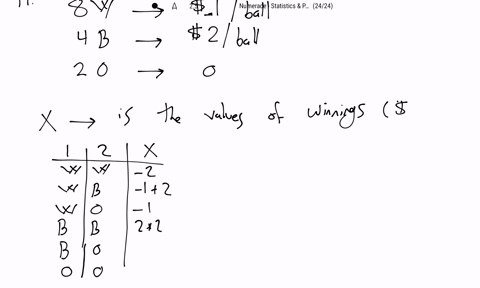 8 W → $-1 / ball
Numerade Statistics & P... (24/24)
4 B → $2 / ball
2 O → 0
X → is the values of winnings ($
1 2 X
W W -2
W B -1+2
W O -1
B B 2+2
B O
O O